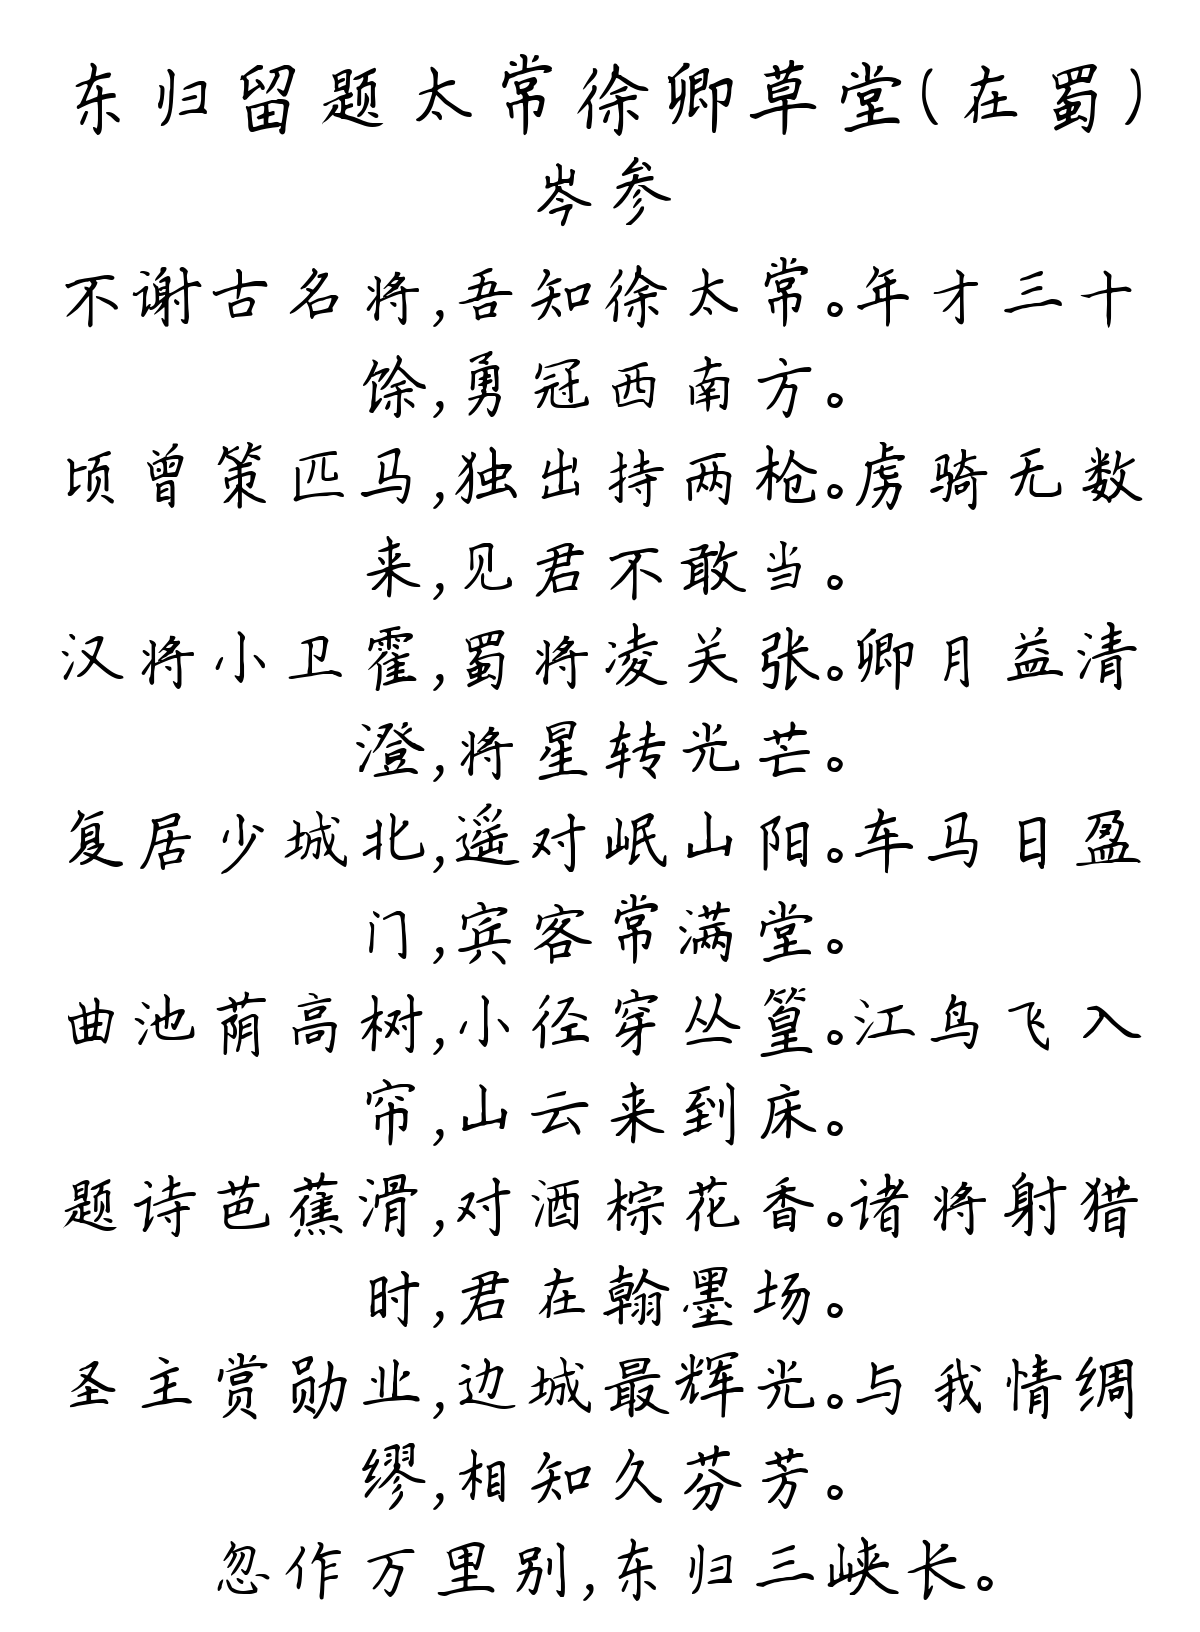 东归留题太常徐卿草堂(在蜀)
岑参
不谢古名将,吾知徐太常。年才三十
馀,勇冠西南方。
顷曾策匹马,独出持两枪。虏骑无数
来,见君不敢当。
汉将小卫霍,蜀将凌关张。卿月益清
澄,将星转光芒。
复居少城北,遥对岷山阳。车马日盈
门,宾客常满堂。
曲池荫高树,小径穿丛篁。江鸟飞入
帘,山云来到床。
题诗芭蕉滑,对酒棕花香。诸将射猎
时,君在翰墨场。
圣主赏勋业,边城最辉光。与我情绸
缪,相知久芬芳。
忽作万里别,东归三峡长。